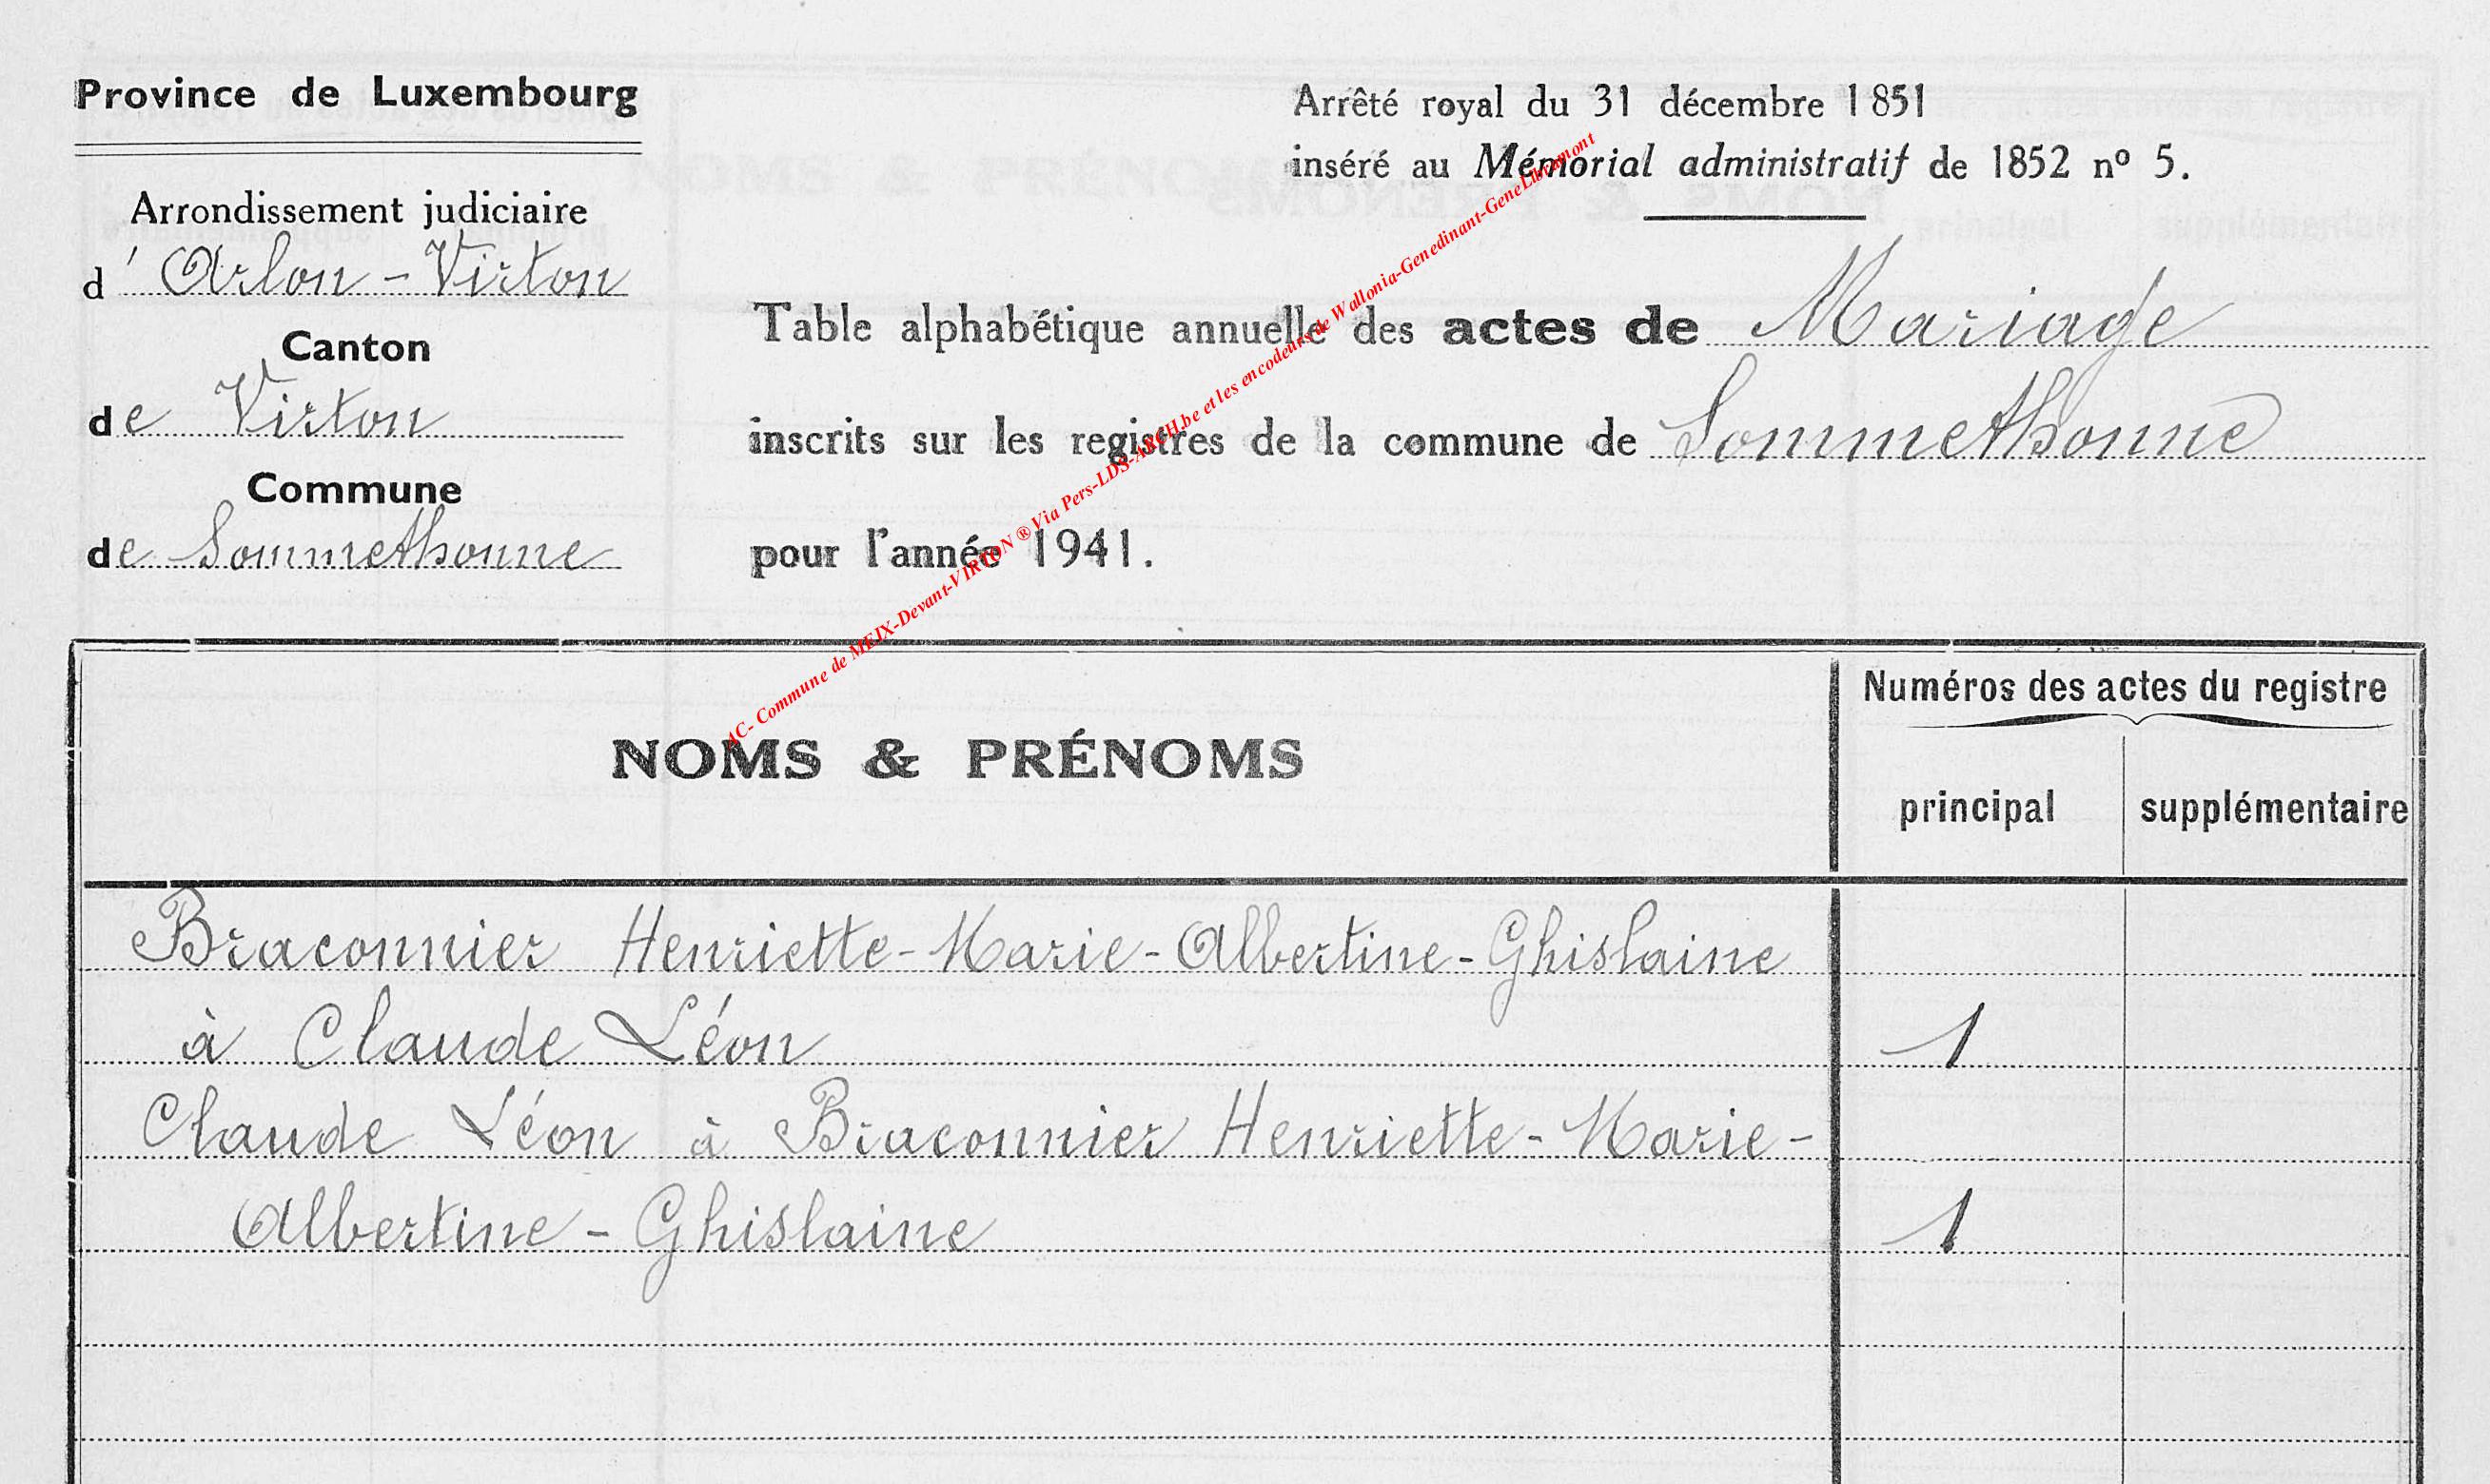 Province de Luxembourg
Arrondissement judiciaire
d' Arlon - Virton
Canton
de Virton
Commune
de Sommethonne
Arrêté royal du 31 décembre 1851
inséré au Mémorial administratif de 1852 nº 5.
Table alphabétique annuelle des actes de Mariage
inscrits sur les registres de la commune de Sommethonne
pour l'année 1941.
AC- Commune de MEIX-Devant-VIRTON ® Via Pers-LDS-ARCH.be et les encodeurs de Wallonia-Genedinant-GeneLibramont
NOMS & PRÉNOMS
Numéros des actes du registre
principal supplémentaire
Braconnier Henriette-Marie-Albertine-Ghislaine
à Claude Léon 1
Claude Léon à Braconnier Henriette-Marie-
Albertine-Ghislaine 1